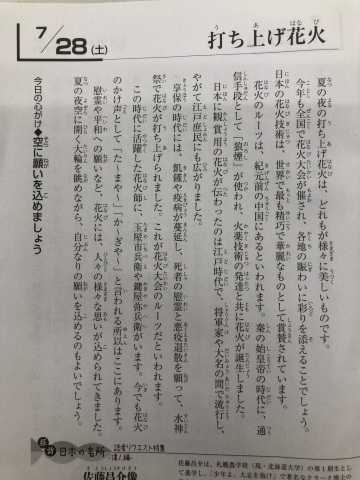 7/28(土)
打ち上げ花火
夏の夜の打ち上げ花火は、どれもが様々に美しいものです。
今年も全国で花火大会が催され、各地の賑わいに彩りを添えることでしょう。
日本の花火技術は、世界で最も精巧で華麗なものとして賞賛されています。
花火のルーツは、紀元前の中国にあるといわれます。秦の始皇帝の時代に、通
信手段として「狼煙」が使われ、火薬技術の発達と共に花火が誕生しました。
日本に観賞用の花火が伝わったのは江戸時代で、将軍家や大名の間で流行し、
やがて江戸庶民にも広がりました。
享保の時代には、飢饉や疫病が蔓延し、死者の慰霊と悪疫退散を願って、水神
祭で花火が打ち上げられました。これが花火大会のルーツだといわれます。
この時代に活躍した花火師に、玉屋市兵衛や鍵屋弥兵衛がいます。今でも花火
のかけ声として「た〜まや〜」「か〜ぎや〜」と言われる所以はここにあります。
慰霊や平和への願いなど、花火には、人々の様々な思いが込められてきました。
夏の夜空に開く大輪を眺めながら、自分なりの願いを込めるのもよいでしょう。
今日の心がけ◆空に願いを込めましょう
探訪 日本の名所
読者リクエスト特集
-偉人編-
佐藤昌介像
佐藤昌介は、札幌農学校(現・北海道大学)の第1期生とし
て進学し、「少年よ、大志を抱け」で著名なクラーク博士の